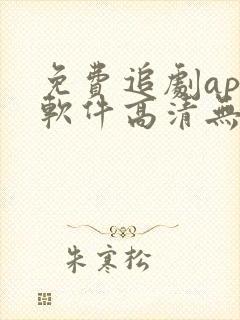 免費追劇ap
軟件高清無
朱寒松